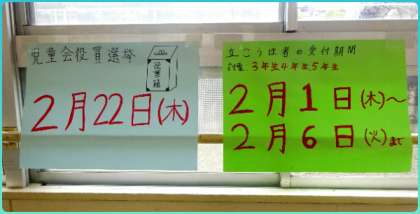 児童会役員選挙
投票箱
2月22日(木)
立こうほ者の受付期間
対象 3年生4年生5年生
2月1日(木)〜
2月6日(火)まで